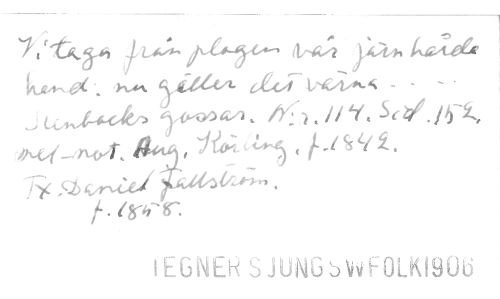 Vi taga från plogen vår järnhårda
hand. nu gäller det värna - . . .
Stenbocks gossar. N:r. 114. Sid. 152.
mel-not. Aug. Körling. f. 1842.
Tx. Daniel Fallström.
f. 1858.
TEGNER SJUNG SW FOLK 1906